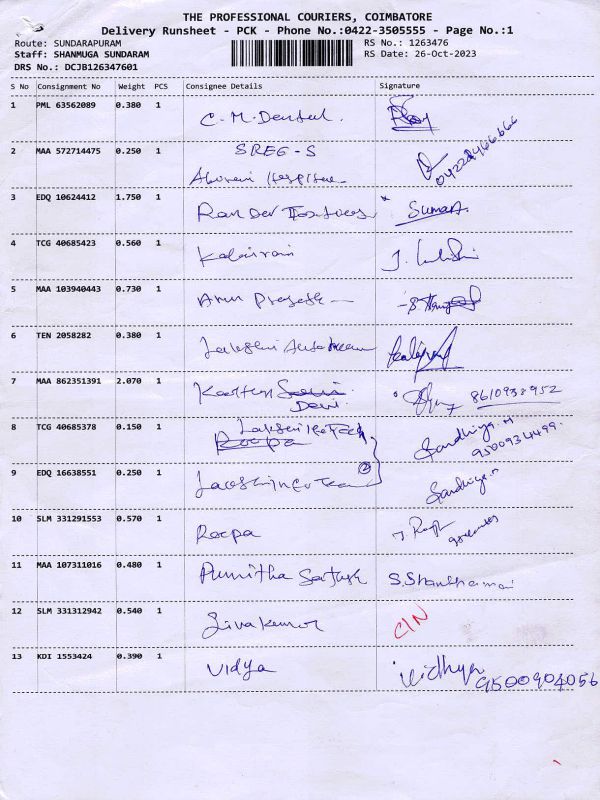 THE PROFESSIONAL COURIERS, COIMBATORE
Delivery Runsheet - PCK - Phone No.:0422-3505555 - Page No.:1
Route: SUNDARAPURAM RS No.: 1263476
Staff: SHANMUGA SUNDARAM RS Date: 26-Oct-2023
DRS No.: DCJB126347601
S No Consignment No Weight PCS Consignee Details Signature
1 PML 63562089 0.380 1 C.M.Dental.
2 MAA 572714475 0.250 1 SREG-S
3 EDQ 10624412 1.750 1 Suman.
4 TCG 40685423 0.560 1
5 MAA 103940443 0.730 1 Arun
6 TEN 2058282 0.380 1
7 MAA 862351391 2.070 1 8610938952
Devi.
8 TCG 40685378 0.150 1 Sandhiya.M
Roopa 9500934499.
9 EDQ 16638551 0.250 1 Sandhiya.M
10 SLM 331291553 0.570 1 Roopa
11 MAA 107311016 0.480 1 Punitha
12 SLM 331312942 0.540 1 Sivakumar C/N
13 KDI 1553424 0.390 1 Vidya Vidhya
9500904056